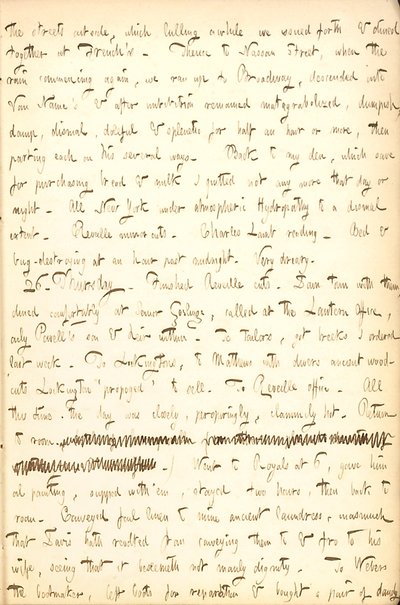 the streets outside, which lulling awhile we issued forth & dined
together at French's. Thence to Nassau Street, when the
rain commencing again, we ran up to Broadway, descended into
Van Name's & after imbibition remained matagrabolized, dumpish,
damp, dismal, doleful & splenetic for half an hour or more, then
parting each on his several ways. Back to my den, which save
for purchasing bread & milk I quitted not any more that day or
night. All New York under atmospheric Hydropathy to a dismal
extent. Reveille minor cuts. Charles Lamb reading. Bed &
bug-destroying at an hour past midnight. Very dreary.
26. Thursday. Finished Reveille cuts. Down town with them,
dined comfortably at Sewer Goslings, called at the Lantern Office,
only Powell's son & Weir within. To Tailors, got breeks I ordered
last week. To Lockingtons, & Mathews with divers ancient wood-
cuts Lockington "proposed" to sell. To Reveille office. All
this time the day was closely, perspiringly, clammily hot. Return
to room.
/ Went to Royals at 6, gave him
oil painting, supped with 'em, stayed two hours, then back to
room. Conveyed foul linen to mine ancient laundress, inasmuch
that Davis hath revolted from conveying them to & fro to his
wife, seeing that it beseemeth not manly dignity. To Webers
the bootmaker, left boots for reparation & bought a pair of dandy